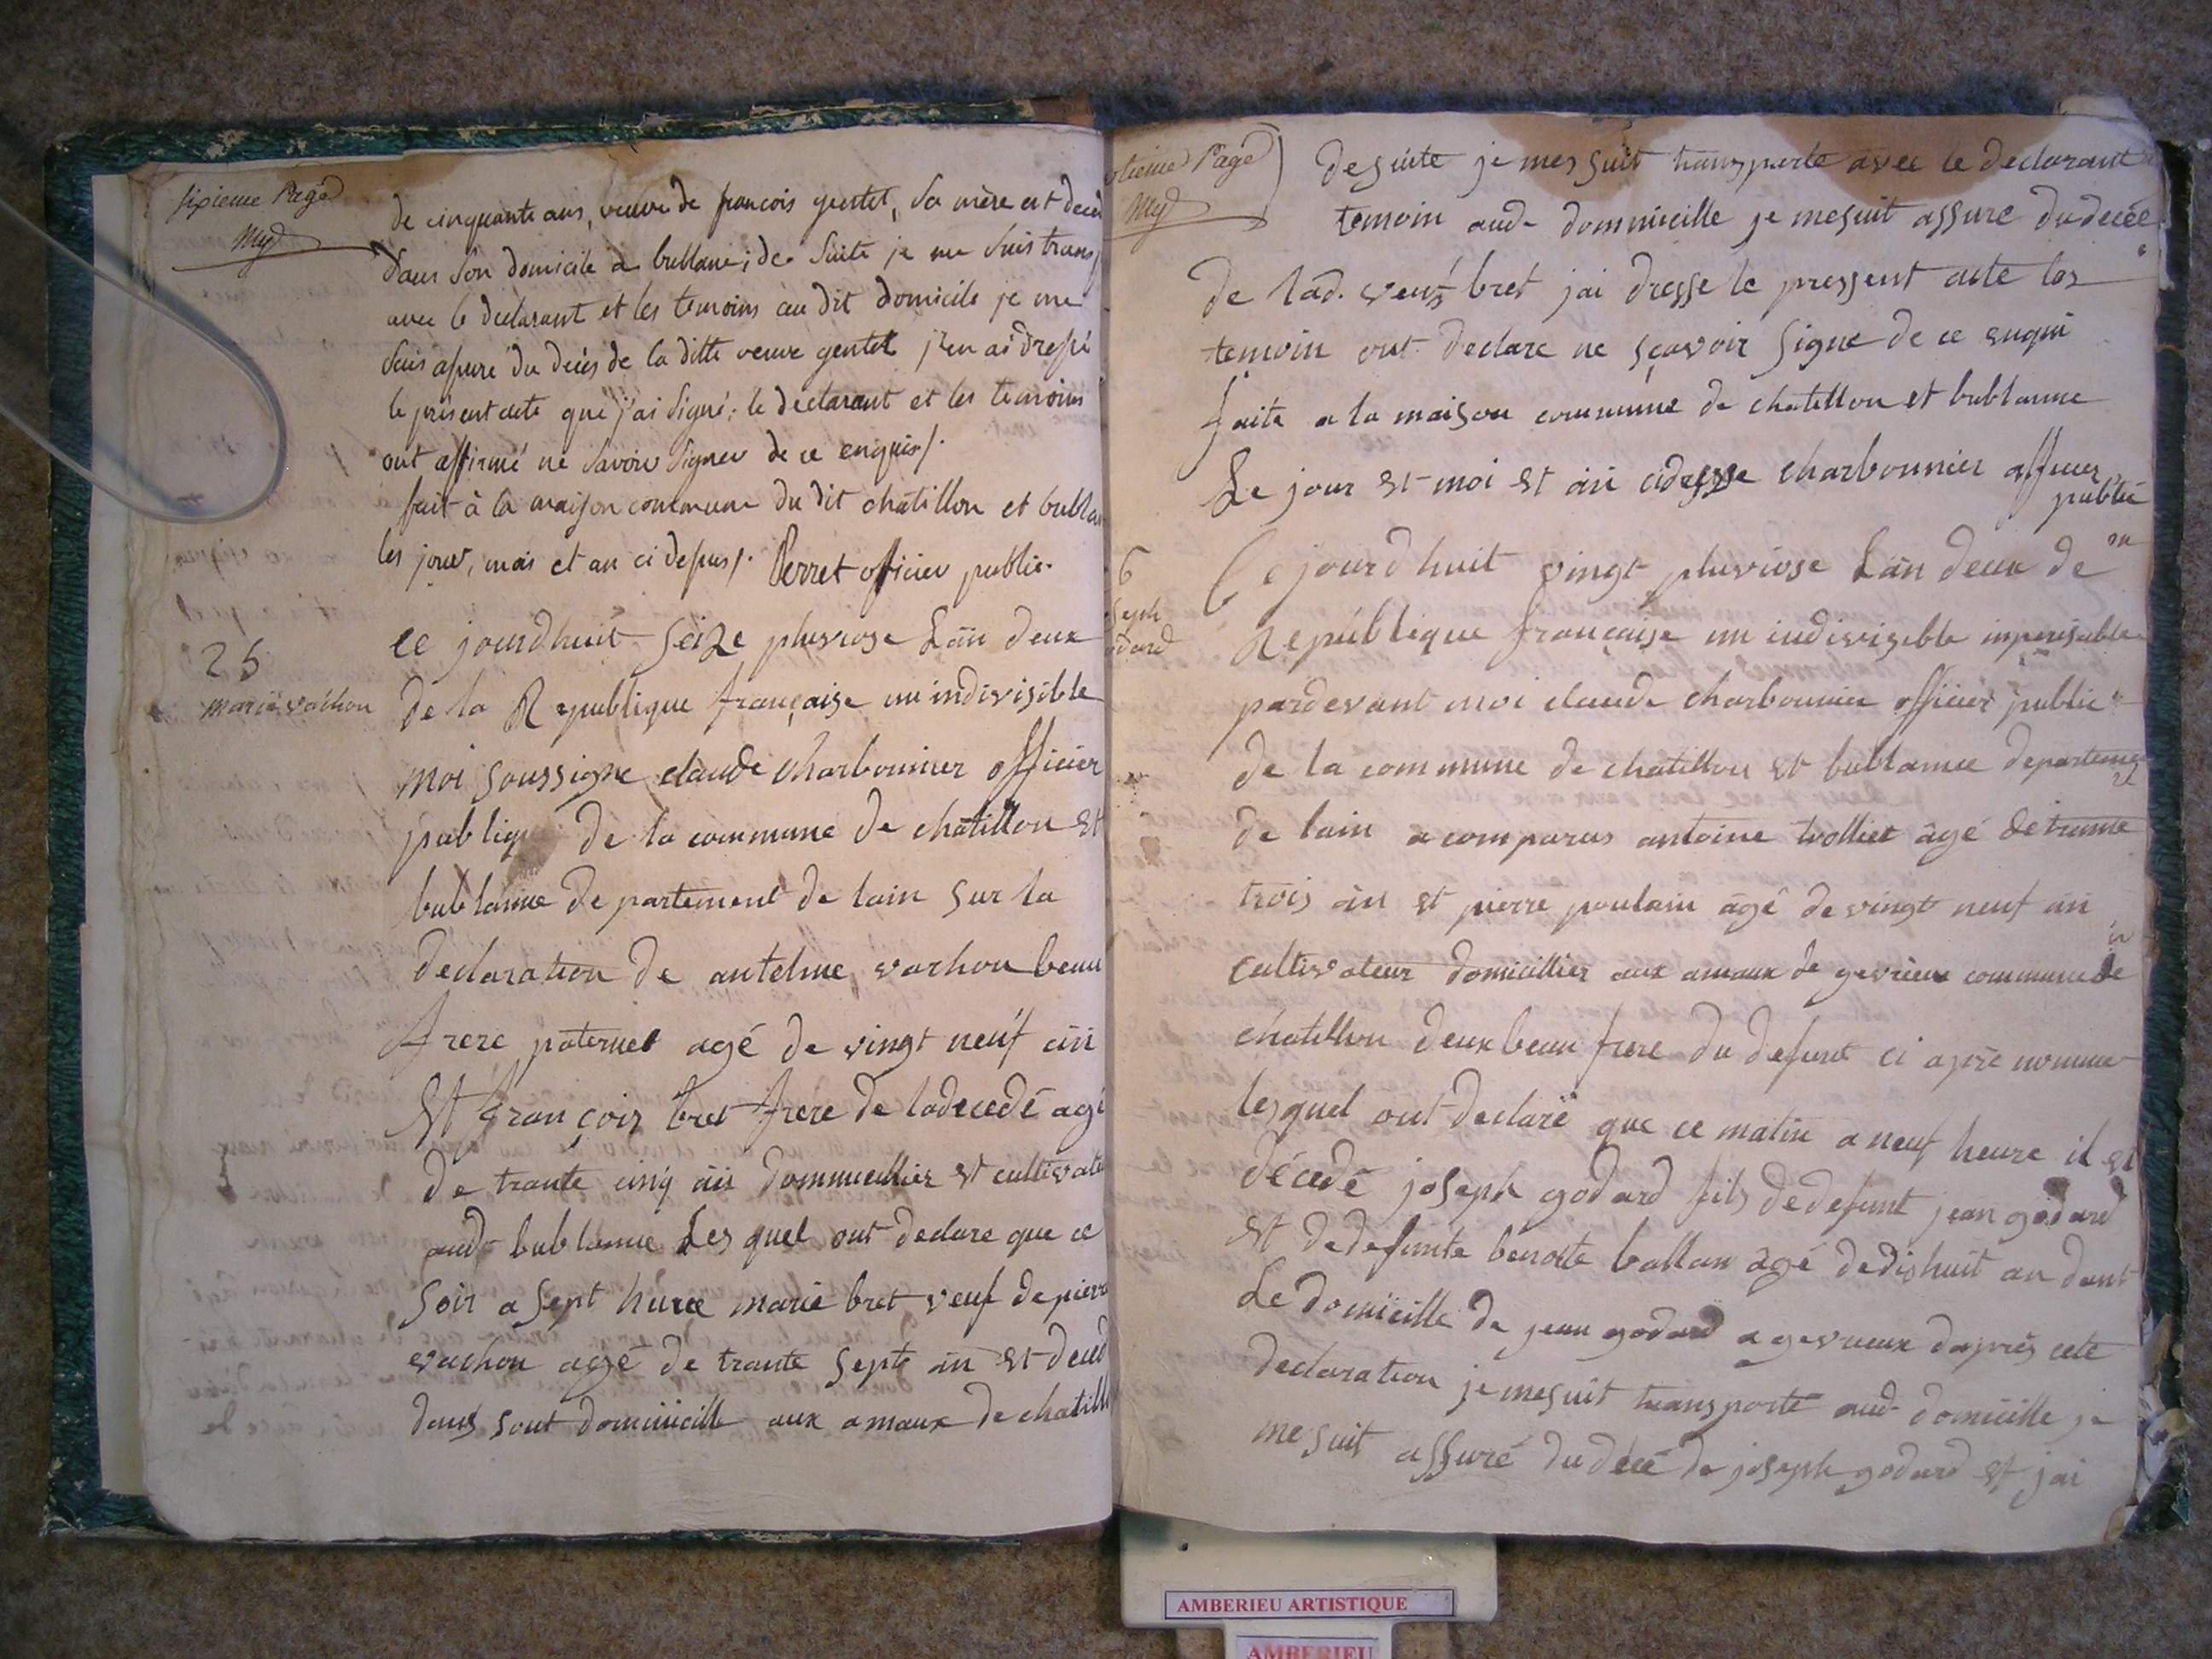 sixieme Page
de cinquante ans, veuve de francois gentet, sa mère est deced
dans son domicile a bublane; de suite je me suis transp
avec le declarant et les temoins au dit domicile je me
suis assuré du decès de la ditte veuve gentet j'en ai dressé
le present acte que j'ai signé; le declarant et les temoins
ont affirmé ne savoir signer de ce enquis/.
fait à la maison commune du dit chatillon et bubla
les jour, mois et an ci dessus/. Perret officier public.
25
marie vachon
ce jourdhuit seize pluviose Lan deux
de la Republique française un indivisible
moi soussigne claude charbonnier officier
publique de la commune de chatillon et
bublanne departement de lain sur la
declaration de antelme vachon beau
frere paternel agé de vingt neuf an
et françois bret frere de ladecedé agé
de trante cinq an dommicillier et cultivate
aud- bublanne Lesquel ont declare que ce
soir a sept heure marie bret veuf de pierre
vachon agé de trante sept an et deced
dans sont domiicille aux amaux de chatill
tieme Page
desuite je mes suit transporte avec le declarant
temoin aud- dommicille je mesuit assure dudecée
de lad. veuv bret jai dresse le pressent acte les
temoin ont declare ne sçavoir signe de ce enqui
faite a la maison commune de chatillon et bublanne
Le jour et moi et an cidesse charbonnier officier
public
6
seph
odard
Ce jourdhuit vingt pluviose Lan deux de
République française un indivisible imperisable
pardevant moi claude charbonnier officier public
de la commune de chatillon et bublanne departeme
nt
de lain a comparus antoine trolliet agé de trante
trois an et pierre poulain agé de vingt neuf an
cultivateur domicillier aux amaux de gevrieux commune de
chatillon deux beau frere du defunt ci aprè nomme
lesquel ont declaré que ce matin a neuf heure il et
décedé joseph godard fils dedefunt jean godard
et dedefunte benoite ballan agé dedixhuit an dant
Le domicille de jean godard a gevrieux daprès cete
declaration je mesuit transporté aud- domicille je
me suit assuré du décé de joseph godard et jai
AMBERIEU ARTISTIQUE
AMBERIEU